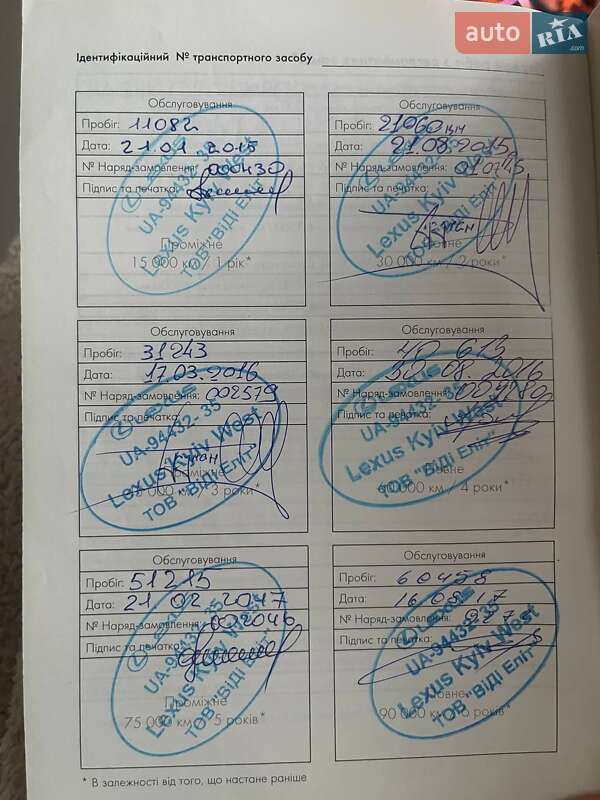 auto RIA.com
Ідентифікаційний № транспортного засобу
Обслуговування
Пробіг: 11082
Дата: 21.01 2015
№ Наряд-замовлення: 000430
Підпис та печатка:
Lexus
UA-94432-35
Lexus Kyiv West
ТОВ "ВіДі Еліт"
Проміжне
15 000 км / 1 рік*
Обслуговування
Пробіг: 21060
Дата: 21.08.2015
№ Наряд-замовлення: 010745
Підпис та печатка:
UA-94432-35
Lexus Kyiv West
ТОВ "ВіДі Еліт"
Повне
30 000 км / 2 роки*
Обслуговування
Пробіг: 31243
Дата: 17.03.2016
№ Наряд-замовлення: 002579
Підпис та печатка:
Lexus
UA-94432-35
Lexus Kyiv West
ТОВ "ВіДі Еліт"
Проміжне
км / 3 роки*
Обслуговування
Пробіг: 40 613
Дата: 30.08.2016
№ Наряд-замовлення:
Підпис та печатка:
Lexus
UA-94432-35
Lexus Kyiv West
ТОВ "ВіДі Еліт"
Повне
60 000 км / 4 роки*
Обслуговування
Пробіг: 51215
Дата: 21 02 2017
№ Наряд-замовлення: 002046
Підпис та печатка:
Lexus
UA-94432-35
Lexus Kyiv West
ТОВ "ВіДі Еліт"
Проміжне
75 000 км / 5 років*
Обслуговування
Пробіг: 60458
Дата: 16 08 17
№ Наряд-замовлення:
Підпис та печатка:
Lexus
UA-94432-35
Lexus Kyiv West
ТОВ "ВіДі Еліт"
Повне
90 000 км / 6 років*
* В залежності від того, що настане раніше